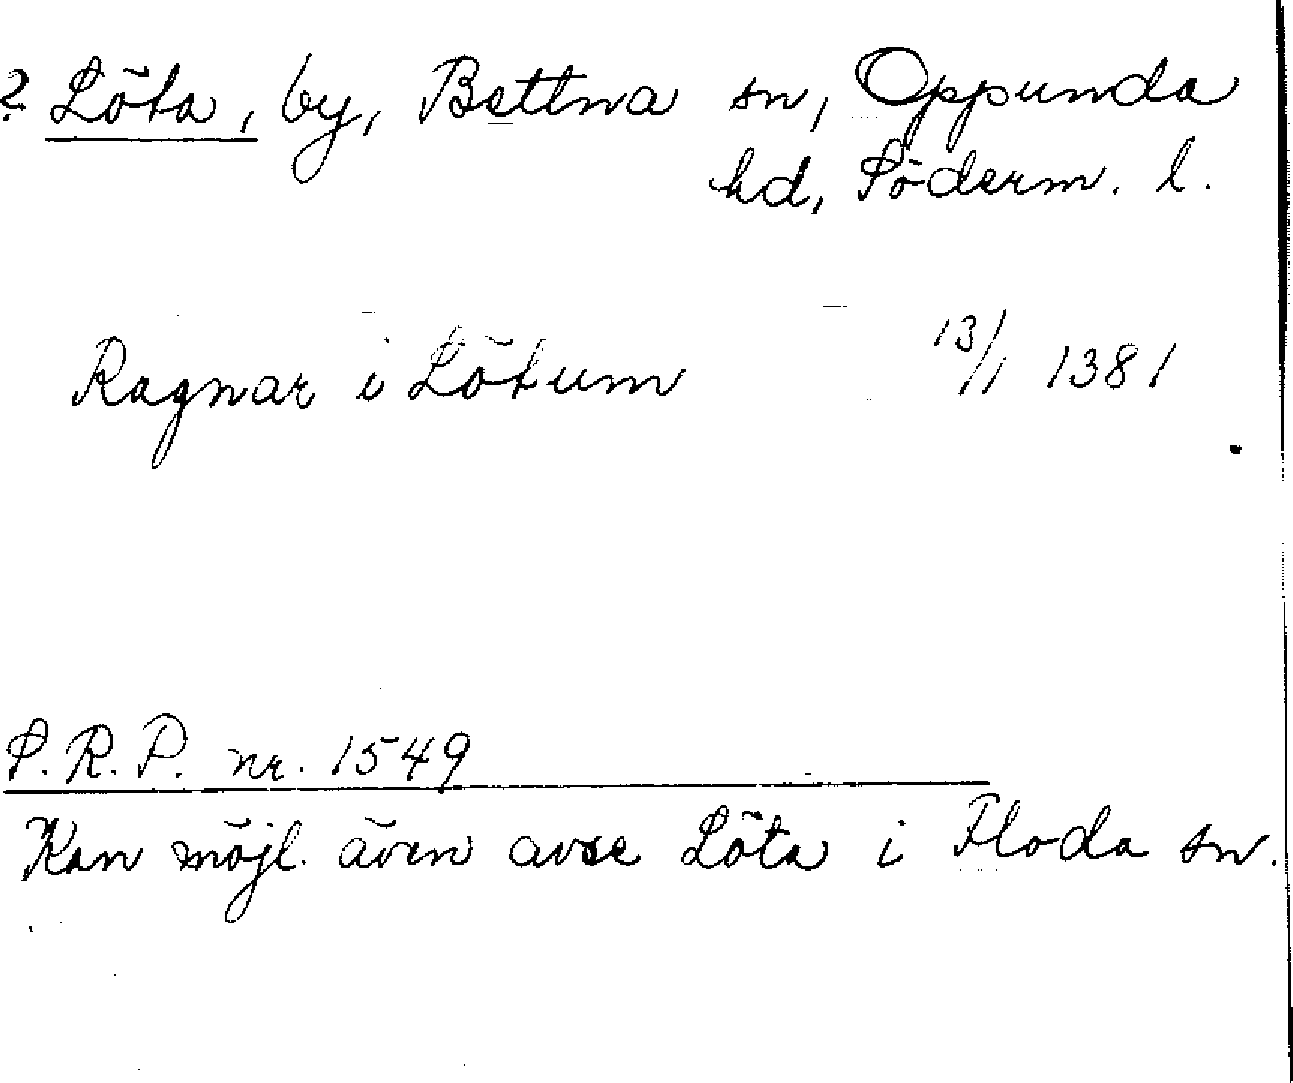 ? Löta, by, Bettna sn, Oppunda
hd, Söderm. l.
Ragnar i Lötum 13/1 1381
S.R.P. nr. 1549
Kan möjl. även avse Löta i Floda sn.